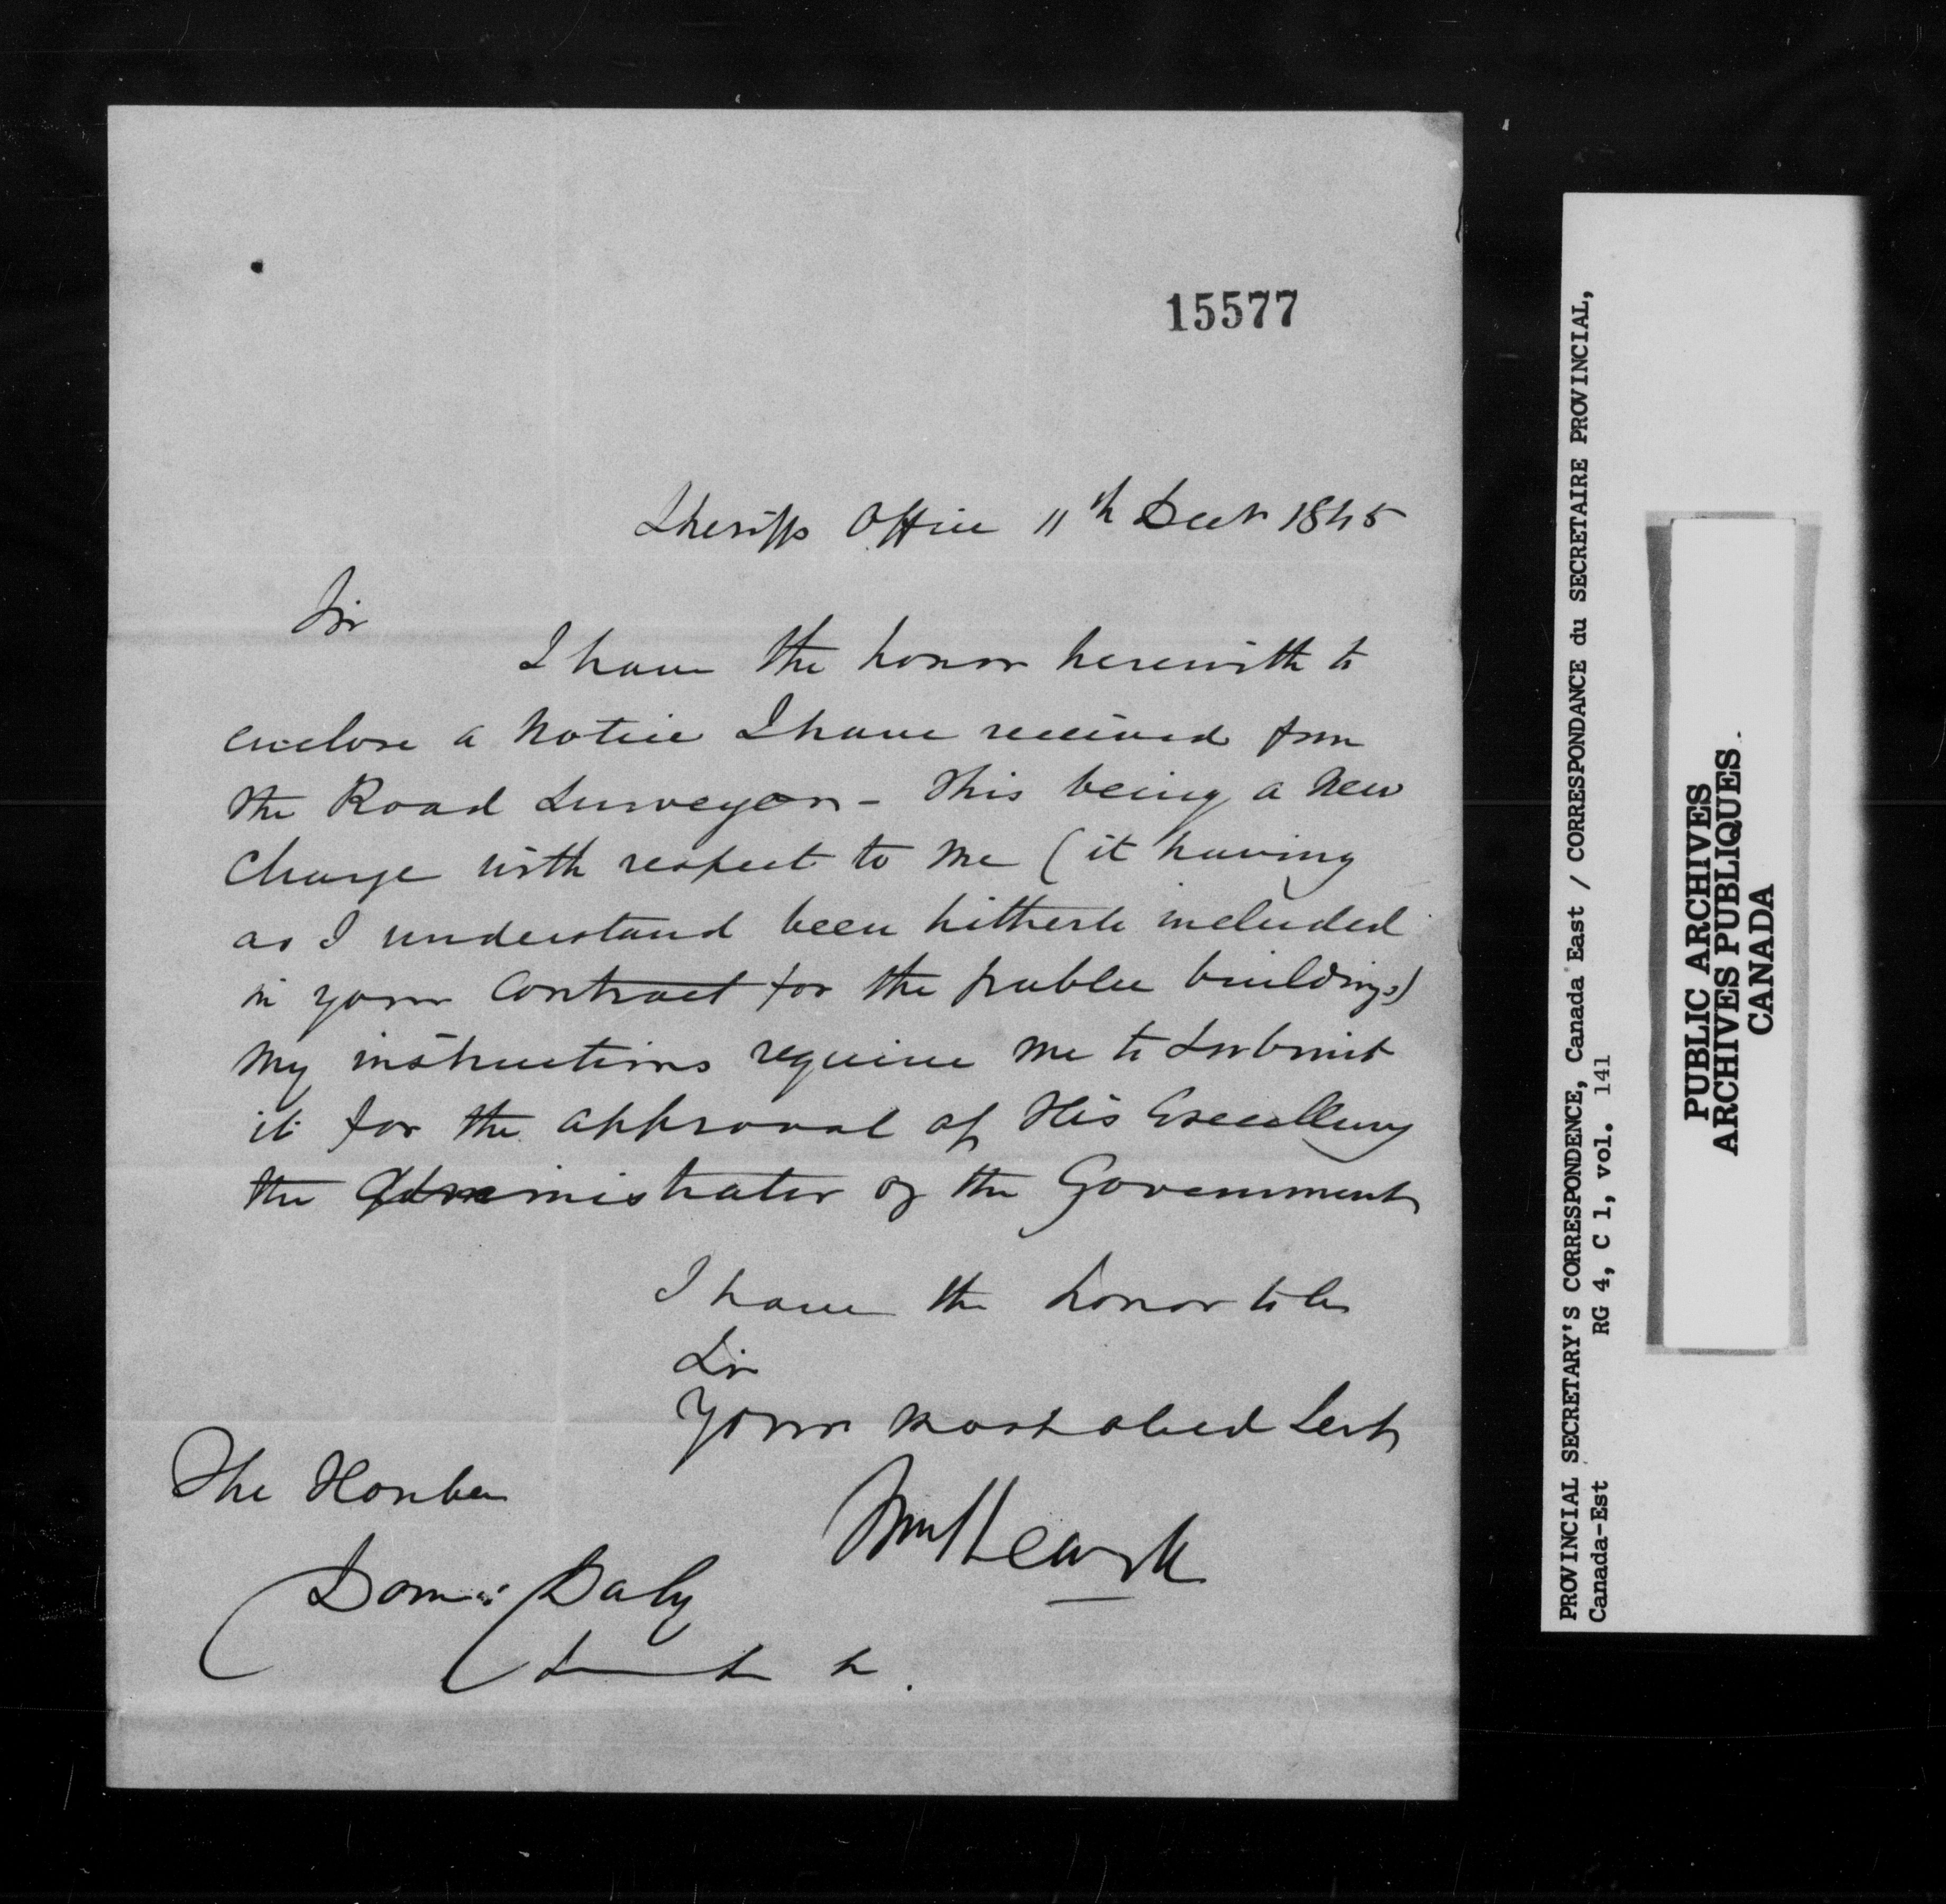 15577
Sheriffs Office 11th Decr 1845
Sir
I have the honor herewith to
enclose a Notice I have received from
the Road Surveyor - this being a new
charge with respect to me (it having
as I understand been hitherto included
in your contract for the public buildings)
my instructions require me to submit
it for the approval of His Excellency
the Administrator of the Government
I have the honor to be
Sir
Your most obed Servt
The Honbe
Domk Daly
PROVINCIAL SECRETARY'S CORRESPONDENCE, Canada East / CORRESPONDANCE du SECRETAIRE PROVINCIAL,
Canada-Est RG 4, C 1, vol. 141
PUBLIC ARCHIVES
ARCHIVES PUBLIQUES
CANADA